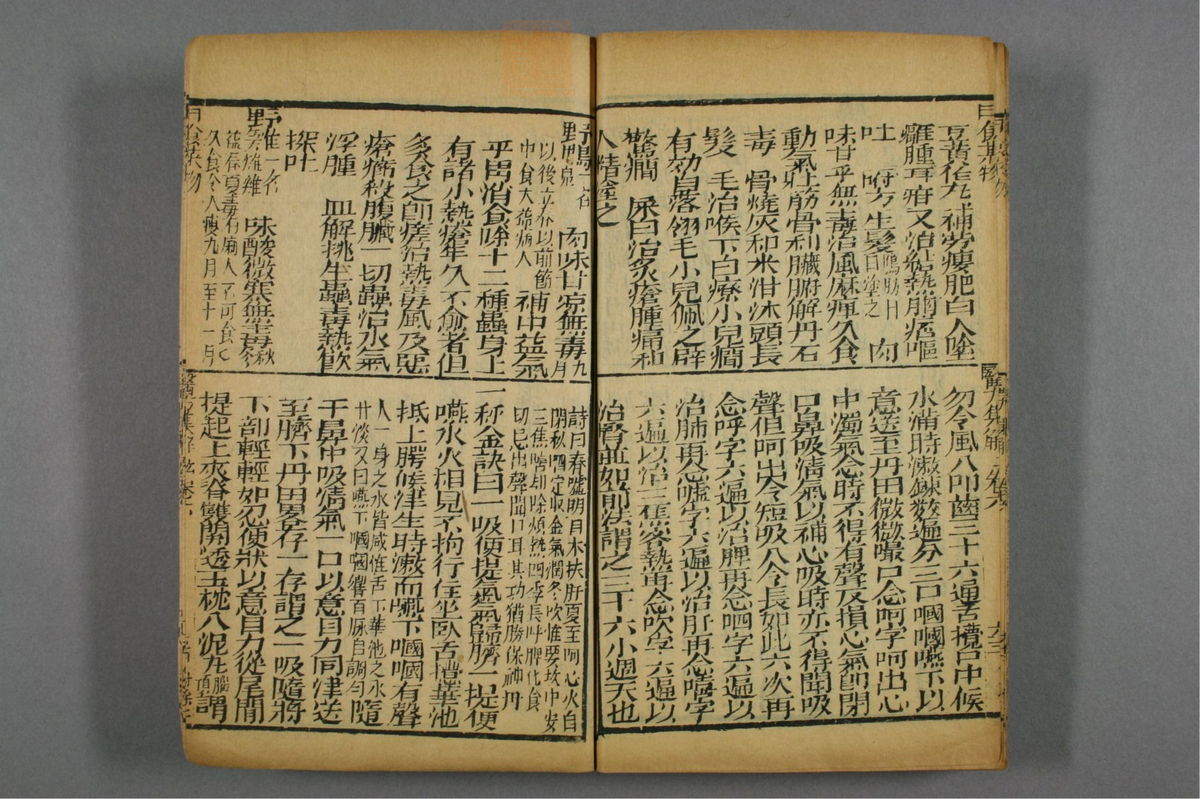 豆黃作丸補勞瘦肥白人塗
癰腫耳疳又治結熱胸痞嘔
吐 生髮鴈肪日日塗之 肉
味甘平無毒治風麻痺久食
動氣壯筋骨利臟腑解丹石
毒 骨燒灰和米泔沐頭長
髮 毛治喉下白療小兒癇
有効自落翎毛小兒佩之辟
驚癇 屎白治灸瘡腫痛和
人精塗之
勿令風入叩齒三十六遍舌攪口中候
水滿時漱鍊數遍分三口嘓嘓嚥下以
意送至丹田微微撮口念呵字呵出心
中濁氣念時不得有聲反損心氣即閉
口鼻吸清氣以補心吸時亦不得聞吸
聲但呵出令短吸入令長如此六次再
念呼字六遍以治脾再念呬字六遍以
治肺再念噓字六遍以治肝再念嘻字
六遍以治三焦客熱再念吹字六遍以
治腎並如前法謂之三十六小週天也
野鴨一名鳧 肉味甘涼無毒九月
以後立春以前節中食大益病人 補中益氣
平胃消食除十二種蟲身上
有諸小熱瘡年久不愈者但
多食之即瘥治熱毒風及惡
瘡癤殺腹臟一切蟲治水氣
浮腫 血解挑生蠱毒熱飲
探吐
野雉一名野雞 味酸微寒無毒秋冬
益春夏毒有痼人不可食
久食令人瘦九月至十一月
詩曰春噓明目木扶肝夏至呵心火自
閉秋呬定收金氣潤冬吹惟要坎中安
三焦嘻却除煩熱四季長呼脾化食
切忌出聲聞口耳其功猶勝保神丹
一秤金訣曰一吸便提氣氣歸臍一提便
嚥水火相見不拘行住坐臥舌攪華池
抵上腭候津生時漱而嚥下嘓嘓有聲
人一身之水皆鹹惟舌下華池之水
甘淡又曰嚥下嘓嘓響百脉自調勻 隨
于鼻中吸清氣一口以意目力同津送
至臍下丹田畧存一存謂之一吸隨將
下部輕輕如忍便狀以意目力從尾閭
提起上夾脊雙關透玉枕入泥丸腦頂謂